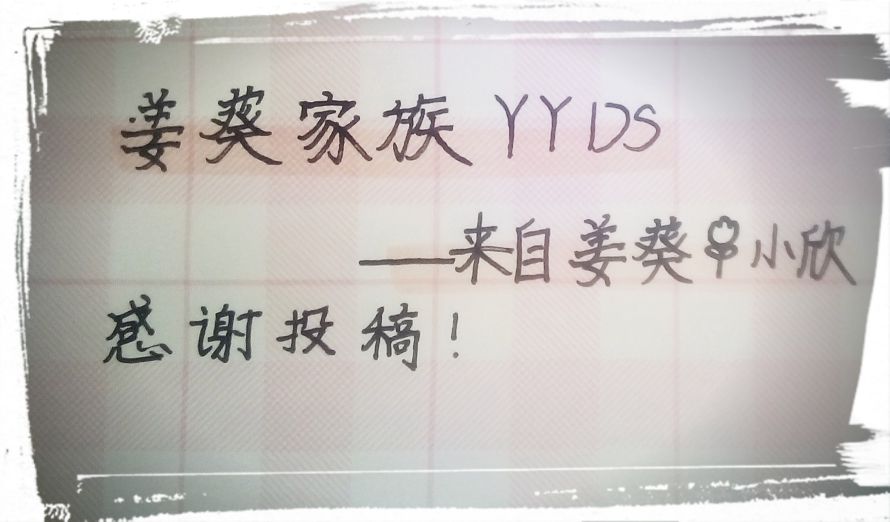 姜葵家族YYDS
——来自姜葵🌷小欣
感谢投稿！